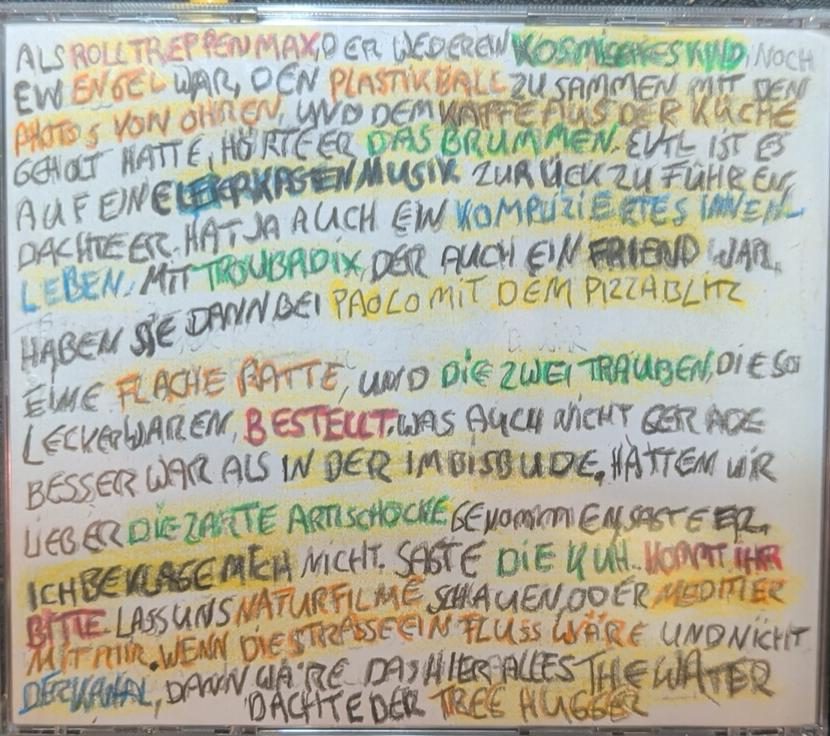 ALS ROLLTREPPENMAX, DER WEDER EIN KOSMISCHES KIND, NOCH
EIN ENGEL WAR, DEN PLASTIKBALL ZUSAMMEN MIT DEN
PHOTOS VON OHREN, UND DEM KAFFE AUS DER KÜCHE
GEHOLT HATTE, HÖRTE ER DAS BRUMMEN. EVTL IST ES
AUF EINE LEIERKASTENMUSIK ZURÜCK ZU FÜHREN,
DACHTE ER. HAT JA AUCH EIN KOMPLIZIERTES INNEN-
LEBEN. MIT TROUBADIX, DER AUCH EIN FRIEND WAR,
HABEN SIE DANN BEI PAOLO MIT DEM PIZZABLITZ
EINE FLACHE RATTE, UND DIE ZWEI TRAUBEN, DIE SO
LECKER WAREN, BESTELLT. WAS AUCH NICHT GERADE
BESSER WAR ALS IN DER IMBISBUDE, HÄTTEN WIR
LIEBER DIE ZARTE ARTISCHOCKE GENOMMEN, SAGTE ER.
ICH BEKLAGE MICH NICHT. SAGTE DIE KUH. KOMMT IHR
BITTE. LASS UNS NATURFILME SCHAUEN, ODER MEDITIER
MIT MIR. WENN DIE STRASSE EIN FLUSS WÄRE UND NICHT
DER KANAL, DANN WÄRE DAS HIER ALLES THE WATER
DACHTE DER TREE HUGGER